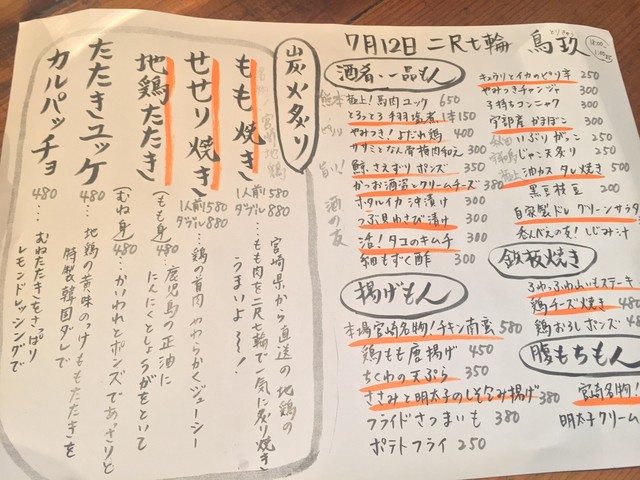 7月12日 二尺七輪 鳥玖
酒肴・一品もん
極上!馬肉ユッケ 650
とろとろ手羽塩煮 1本150
やみつき!よだれ鶏 400
ササミとなん骨梅肉和え 300
鯨さえずりポンズ
かつお酒盗とクリームチーズ 380
ホタルイカ沖漬け 300
つぶ貝わさび漬け 300
活!タコのキムチ 300
細もずく酢 300
きゅうりとイカのピリ辛 250
やみつきチャンジャ 300
子持ちコンニャク 300
宇部産かまぼこ 300
秋田 いぶりがっこ 250
じゃこ天炙り 250
極上 油カスタレ焼き 500
黒豆枝豆 200
自家製ドレ グリーンサラダ
呑んべえの友!しじみ汁
揚げもん
本場宮崎名物!チキン南蛮 580
鶏もも唐揚げ 450
ちくわの天ぷら 350
ささみと明太子のしそ包み揚げ 380
フライドさつまいも 380
ポテトフライ 250
鉄板焼き
ふわふわ山いもステーキ
鶏チーズ焼き 480
鶏おろしポンズ 480
腹もちもん
宮崎名物!
明太子クリーム
炭火炙り
もも焼き 1人前580 ダブル880
…宮崎県から直送の地鶏の
もも肉を二尺七輪で一気に炙り焼き
うまいよ〜!
せせり焼き 1人前580 ダブル880
…鶏の首肉 やわらかくジューシー
地鶏たたき
(もも身)480…鹿児島の正油に
にんにくとしょうがをといて
(むね身)480…かいわれとポンズであっさりと
たたきユッケ 480…地鶏の黄味のっけももたたきを
特製韓国ダレで
カルパッチョ 480…むねたたきをさっぱり
レモンドレッシングで